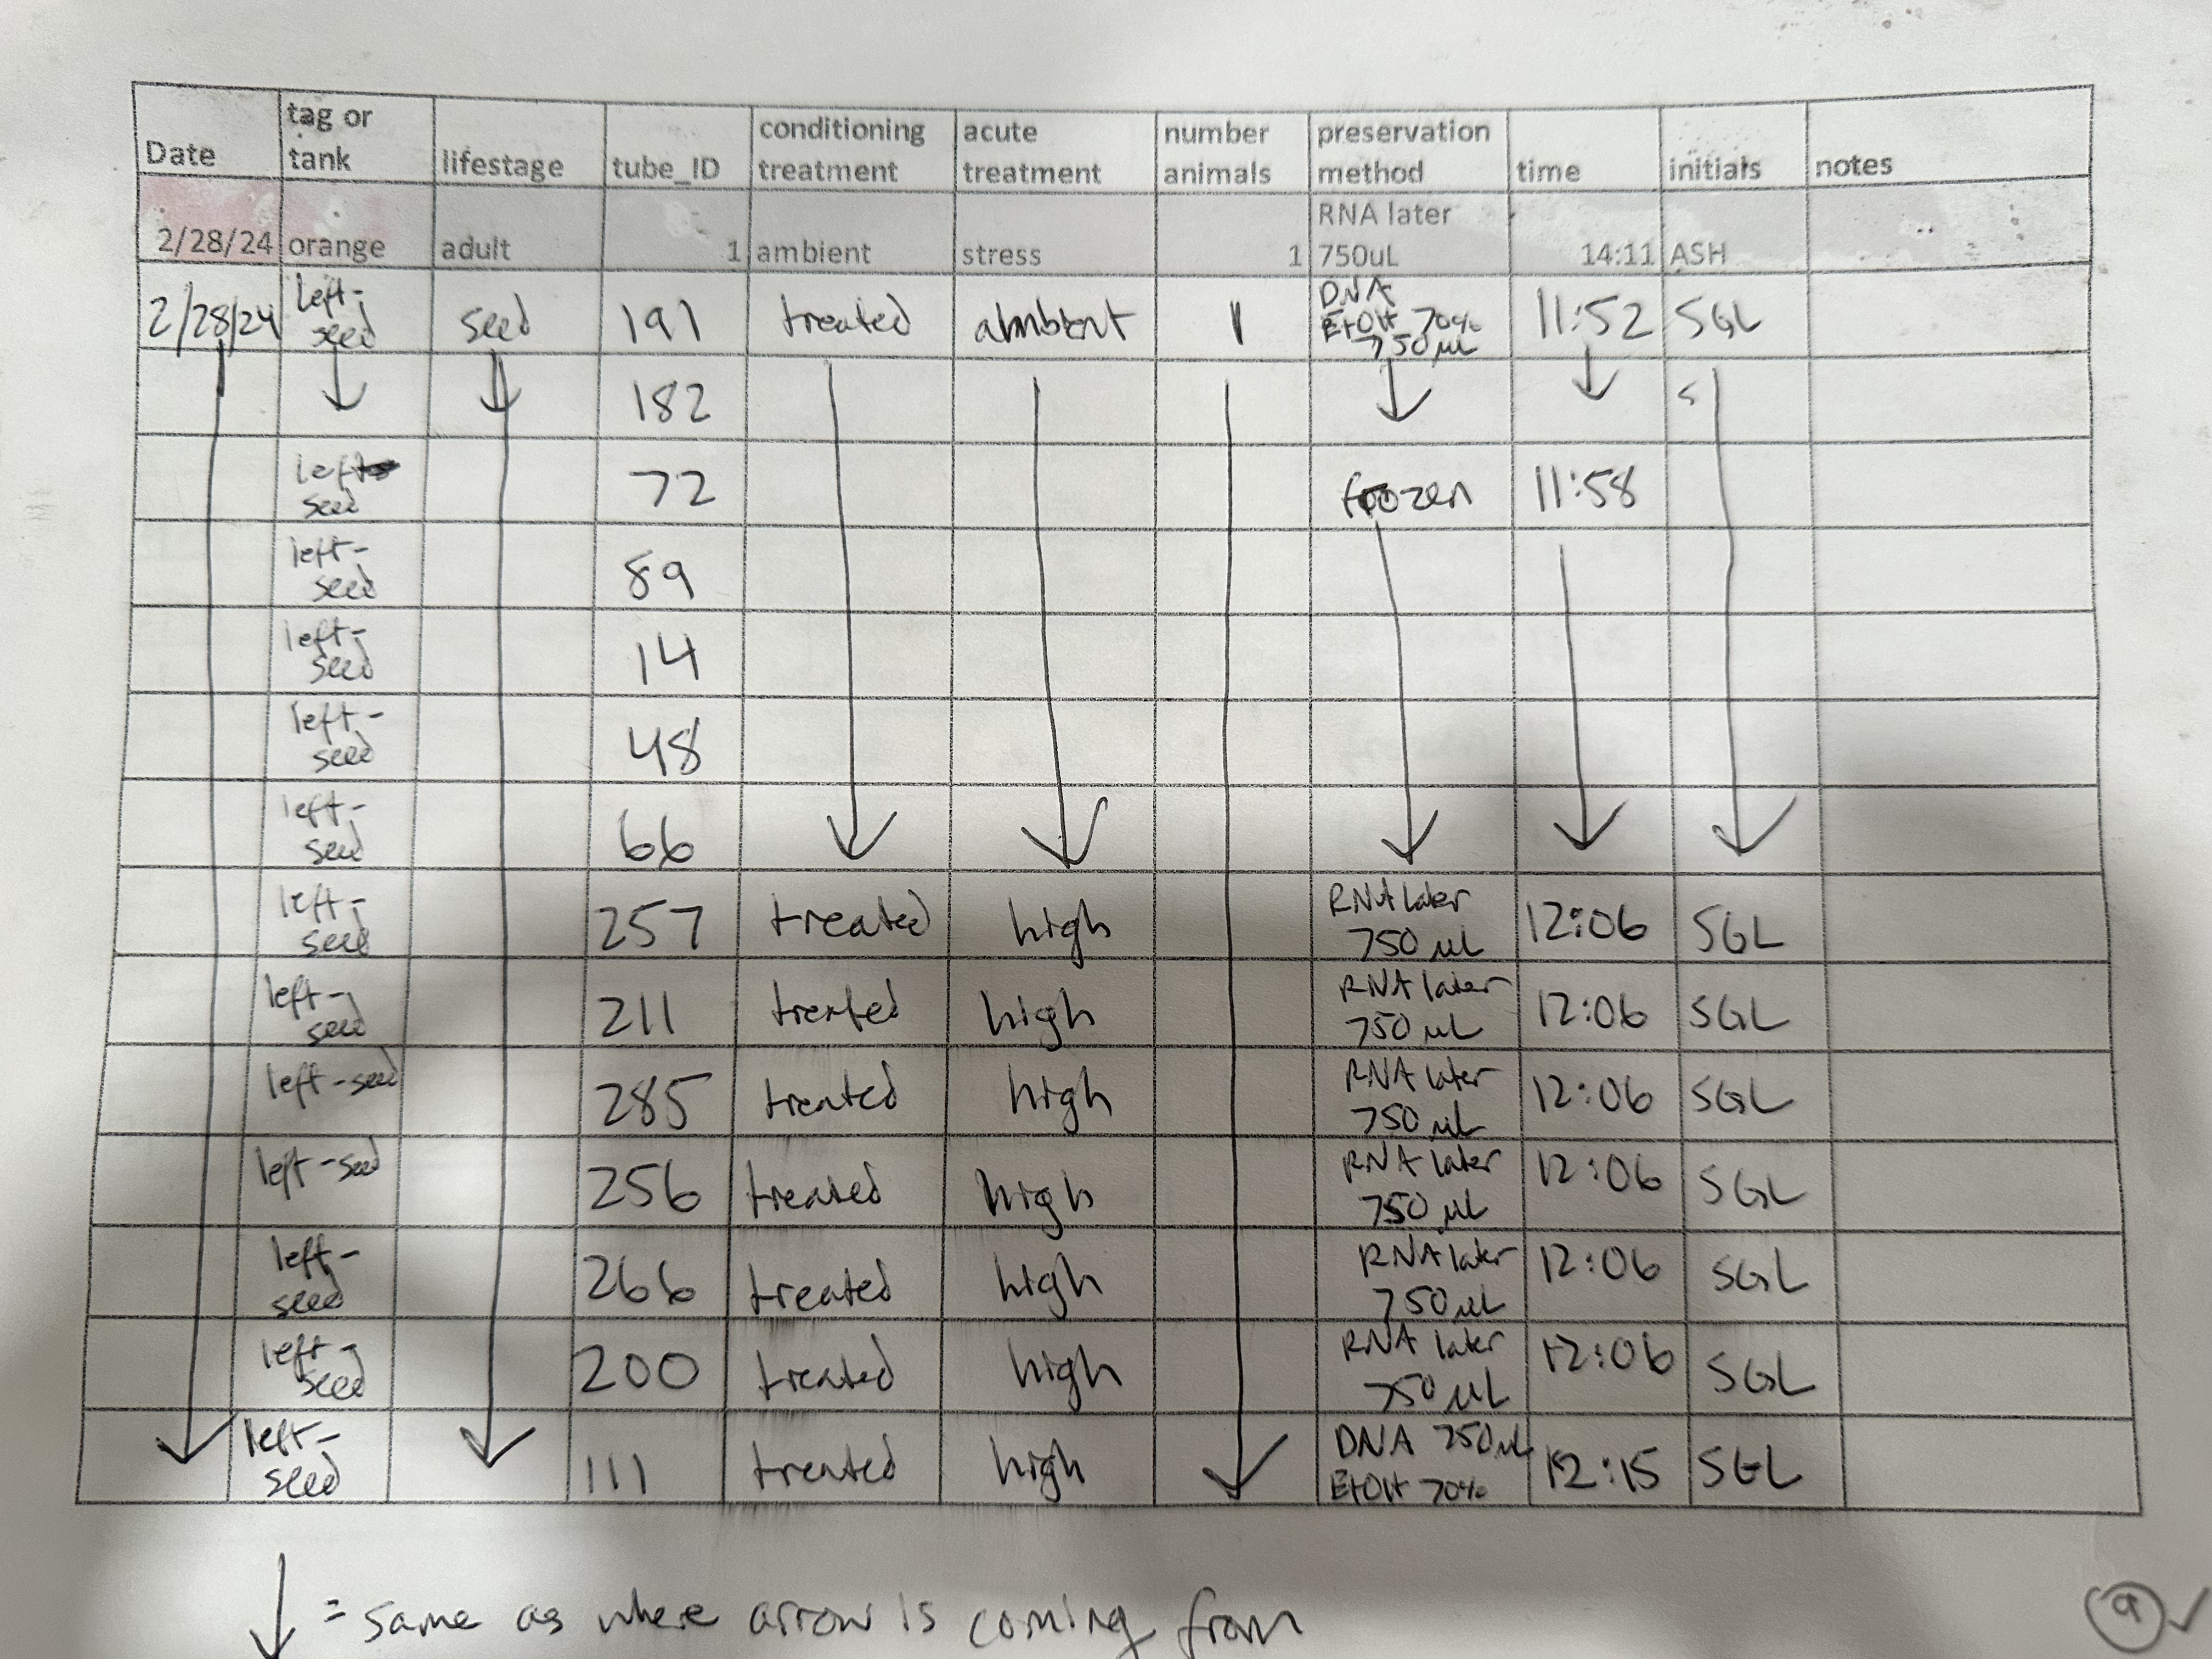 Date tag or tank lifestage tube_ID conditioning treatment acute treatment number animals preservation method time initials notes
2/28/24 orange adult 1 ambient stress 1 RNA later 750uL 14:11 ASH
2/28/24 left-seed seed 191 treated ambient 1 DNA EtOH 70% 750 µL 11:52 SGL
↓ ↓ 182 ↓ ↓ s
left-seed 72 frozen 11:58
left-seed 89
left-seed 14
left-seed 48
left-seed 66 ↓ ↓ ↓ ↓ ↓
left-seed 257 treated high RNA later 750 µL 12:06 SGL
left-seed 211 treated high RNA later 750 µL 12:06 SGL
left-seed 285 treated high RNA later 750 µL 12:06 SGL
left-seed 256 treated high RNA later 750 µL 12:06 SGL
left-seed 266 treated high RNA later 750 µL 12:06 SGL
left-seed 200 treated high RNA later 750 µL 12:06 SGL
↓ left-seed ↓ 111 treated high ↓ DNA 750 µL EtOH 70% 12:15 SGL
↓ = same as where arrow is coming from